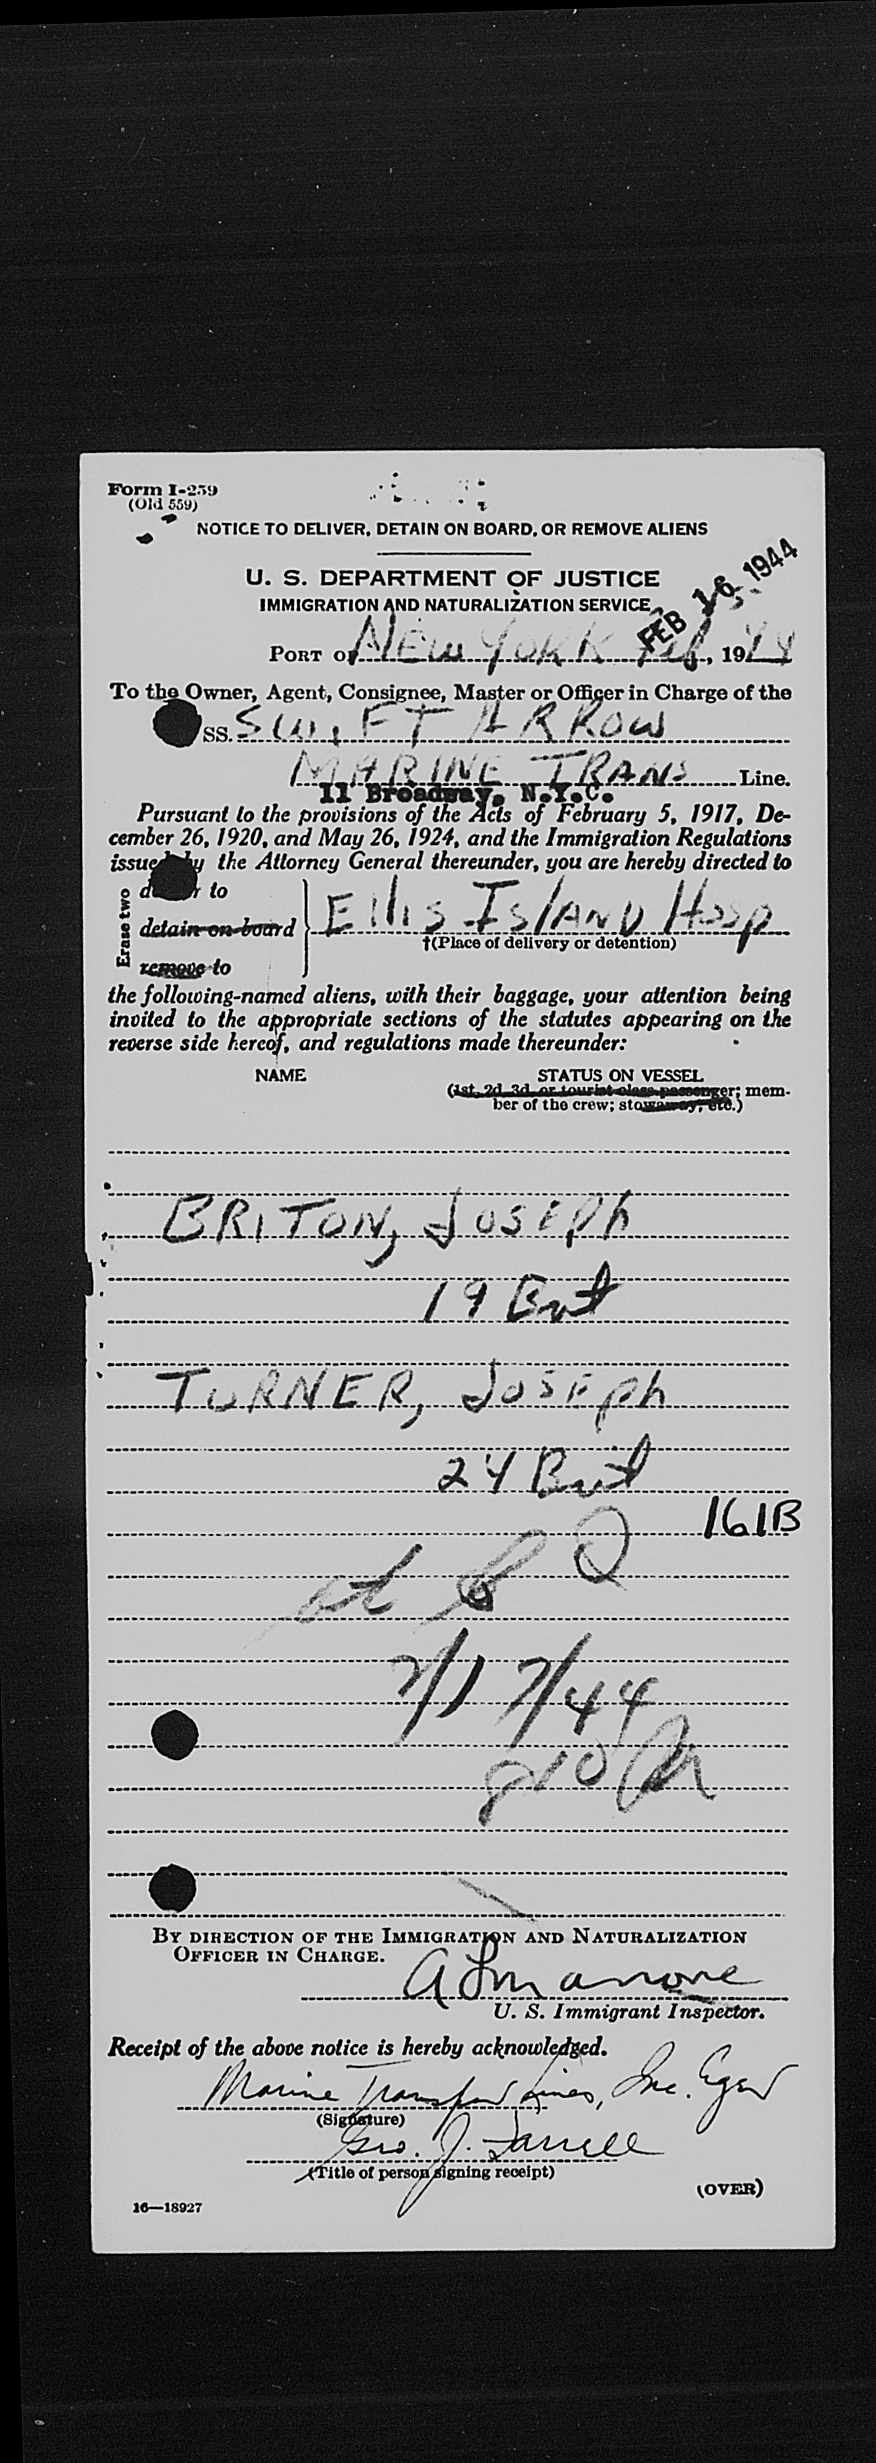 Form I-259
(Old 559)
NOTICE TO DELIVER, DETAIN ON BOARD, OR REMOVE ALIENS
U. S. DEPARTMENT OF JUSTICE
IMMIGRATION AND NATURALIZATION SERVICE
FEB 16 1944
PORT OF NEW YORK Feb, 1944
To the Owner, Agent, Consignee, Master or Officer in Charge of the
SS. SWIFT ARROW
MARINE TRANS Line.
11 Broadway, N.Y.C.
Pursuant to the provisions of the Acts of February 5, 1917, De-
cember 26, 1920, and May 26, 1924, and the Immigration Regulations
issued by the Attorney General thereunder, you are hereby directed to
Erase two
to
detain on board
remove to
Ellis Island Hosp
†(Place of delivery or detention)
the following-named aliens, with their baggage, your attention being
invited to the appropriate sections of the statutes appearing on the
reverse side hereof, and regulations made thereunder:
NAME STATUS ON VESSEL
(1st, 2d, 3d, or tourist class passenger; mem-
ber of the crew; stowaway, etc.)
BRITON, JOSEPh
19 Brit
TURNER, JOSEPh
24 Brit
161B
2/17/44
BY DIRECTION OF THE IMMIGRATION AND NATURALIZATION
OFFICER IN CHARGE.
U. S. Immigrant Inspector.
Receipt of the above notice is hereby acknowledged.
Marine Transport Lines, Inc.
(Signature)
Geo. J. Farrell
(Title of person signing receipt)
(OVER)
16—18927